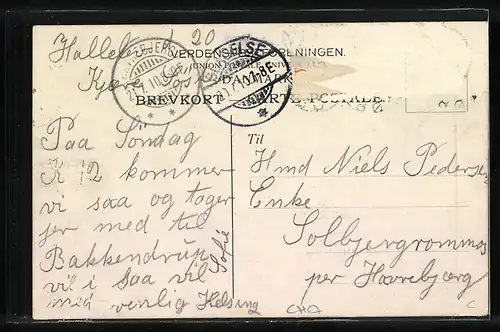 Hallelev 20
VERDENSPOSTFORENINGEN.
(UNION POSTALE UNIVERSELLE)
DANMARK
BREVKORT CARTE POSTALE
Til
Kjære
Paa Söndag
K 12 kommer
vi saa og toger
jer med til
Bakkendrup
vil i saa vil
med venlig Helsing
Sofie
Hmd Niels Pedersen
Enke
Solbjergrommas
per Havrebjærg